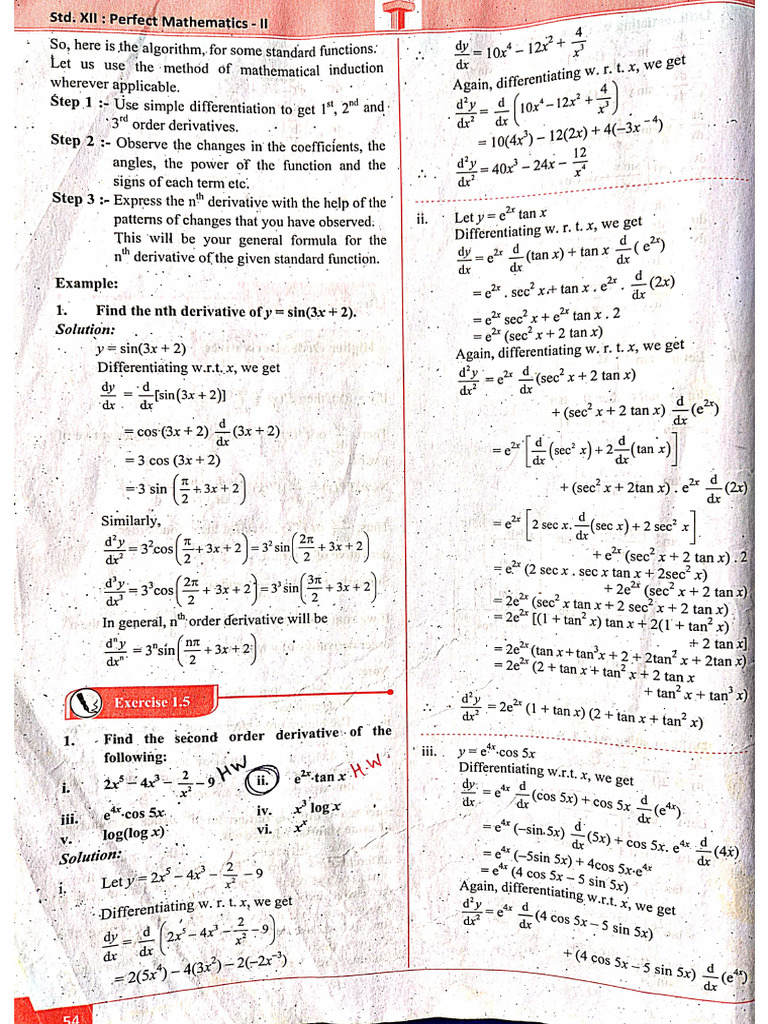 Std. XII : Perfect Mathematics - II
So, here is the algorithm, for some standard functions.
Let us use the method of mathematical induction
wherever applicable.
Step 1 :- Use simple differentiation to get 1st, 2nd and
3rd order derivatives.
Step 2 :- Observe the changes in the coefficients, the
angles, the power of the function and the
signs of each term etc.
Step 3 :- Express the nth derivative with the help of the
patterns of changes that you have observed.
This will be your general formula for the
nth derivative of the given standard function.
Example:
1. Find the nth derivative of y = sin(3x + 2).
Solution:
y = sin(3x + 2)
Differentiating w.r.t. x, we get
dy/dx = d/dx [sin(3x + 2)]
= cos (3x + 2) d/dx (3x + 2)
= 3 cos (3x + 2)
= 3 sin (π/2 + 3x + 2)
Similarly,
d²y/dx² = 3² cos (π/2 + 3x + 2) = 3² sin (2π/2 + 3x + 2)
d³y/dx³ = 3³ cos (2π/2 + 3x + 2) = 3³ sin (3π/2 + 3x + 2)
In general, nth order derivative will be
dⁿy/dxⁿ = 3ⁿ sin (nπ/2 + 3x + 2)
Exercise 1.5
1. Find the second order derivative of the
following:
i. 2x⁵ – 4x³ – 2/x² – 9 HW ii. e²ˣ·tan x H.W
iii. e⁴ˣ·cos 5x iv. x³ log x
v. log(log x) vi. xˣ
Solution:
i. Let y = 2x⁵ – 4x³ – 2/x² – 9
Differentiating w. r. t. x, we get
dy/dx = d/dx (2x⁵ – 4x³ – 2/x² – 9)
= 2(5x⁴) – 4(3x²) – 2(–2x⁻³)
54
∴ dy/dx = 10x⁴ – 12x² + 4/x³
Again, differentiating w. r. t. x, we get
d²y/dx² = d/dx (10x⁴ – 12x² + 4/x³)
= 10(4x³) – 12(2x) + 4(–3x⁻⁴)
∴ d²y/dx² = 40x³ – 24x – 12/x⁴
ii. Let y = e²ˣ tan x
Differentiating w. r. t. x, we get
dy/dx = e²ˣ d/dx (tan x) + tan x d/dx (e²ˣ)
= e²ˣ . sec² x + tan x . e²ˣ . d/dx (2x)
= e²ˣ sec² x + e²ˣ tan x . 2
= e²ˣ (sec² x + 2 tan x)
Again, differentiating w. r. t. x, we get
d²y/dx² = e²ˣ d/dx (sec² x + 2 tan x)
+ (sec² x + 2 tan x) d/dx (e²ˣ)
= e²ˣ [d/dx (sec² x) + 2 d/dx (tan x)]
+ (sec² x + 2tan x) . e²ˣ d/dx (2x)
= e²ˣ [2 sec x. d/dx (sec x) + 2 sec² x]
+ e²ˣ (sec² x + 2 tan x) . 2
= e²ˣ (2 sec x . sec x tan x + 2sec² x)
+ 2e²ˣ (sec² x + 2 tan x)
= 2e²ˣ (sec² x tan x + 2 sec² x + 2 tan x)
= 2e²ˣ [(1 + tan² x) tan x + 2(1 + tan² x)
+ 2 tan x]
= 2e²ˣ (tan x + tan³ x + 2 + 2tan² x + 2tan x)
= 2e²ˣ (2 + tan x + tan² x + 2 tan x
+ tan² x + tan³ x)
∴ d²y/dx² = 2e²ˣ (1 + tan x) (2 + tan x + tan² x)
iii. y = e⁴ˣ·cos 5x
Differentiating w.r.t. x, we get
dy/dx = e⁴ˣ d/dx (cos 5x) + cos 5x d/dx (e⁴ˣ)
= e⁴ˣ (–sin 5x) d/dx (5x) + cos 5x. e⁴ˣ d/dx (4x)
= e⁴ˣ (–5sin 5x) + 4cos 5x·e⁴ˣ
= e⁴ˣ (4 cos 5x – 5 sin 5x)
Again, differentiating w.r.t. x, we get
d²y/dx² = e⁴ˣ d/dx (4 cos 5x – 5 sin 5x)
+ (4 cos 5x – 5 sin 5x) d/dx (e⁴ˣ)